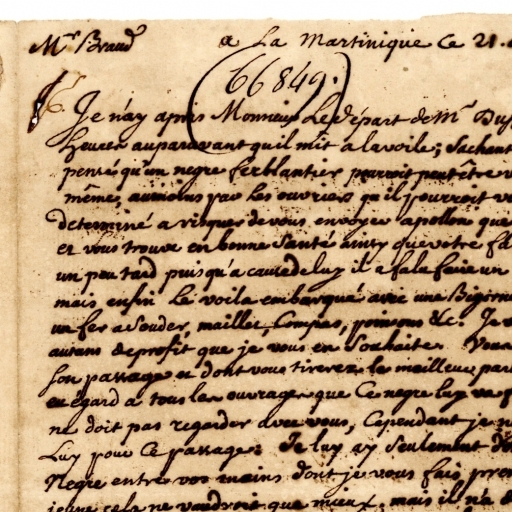 Mr Braud
a La Martinique Ce 21.
66849.
Je n'ay apris Monsieur Le départ de Mr Duss
heures auparavant qu'il mit a la voile; Sachant
pensé qu'un negre ferblantier pourroit peut être v
même, aumoins par les ouvriers qu'il pourroit v
determiné a risquer de vous envoyer apollon que
et vous trouve en bonne Santé ainsy que votre fa
un peu tard puisqu'a cause de luy il a falu faire un
mais enfin Le voila embarqué avec une Bigorne
un fer a Souder, maillet, Compas, poinsons &c. Je v
autant de profit que je vous en Souhaite. Vous
Son passage et dont vous tirerez le meilleur par
eu égard a tous les ouvrages que Ce negre
ne doit pas regarder avec vous, Cependant je n
Luy pour Ce passage. Je luy ay Seulement d
Negre entre vos mains dont je vous fais pre
cela ne vaudroit que mieux, mais il n'a